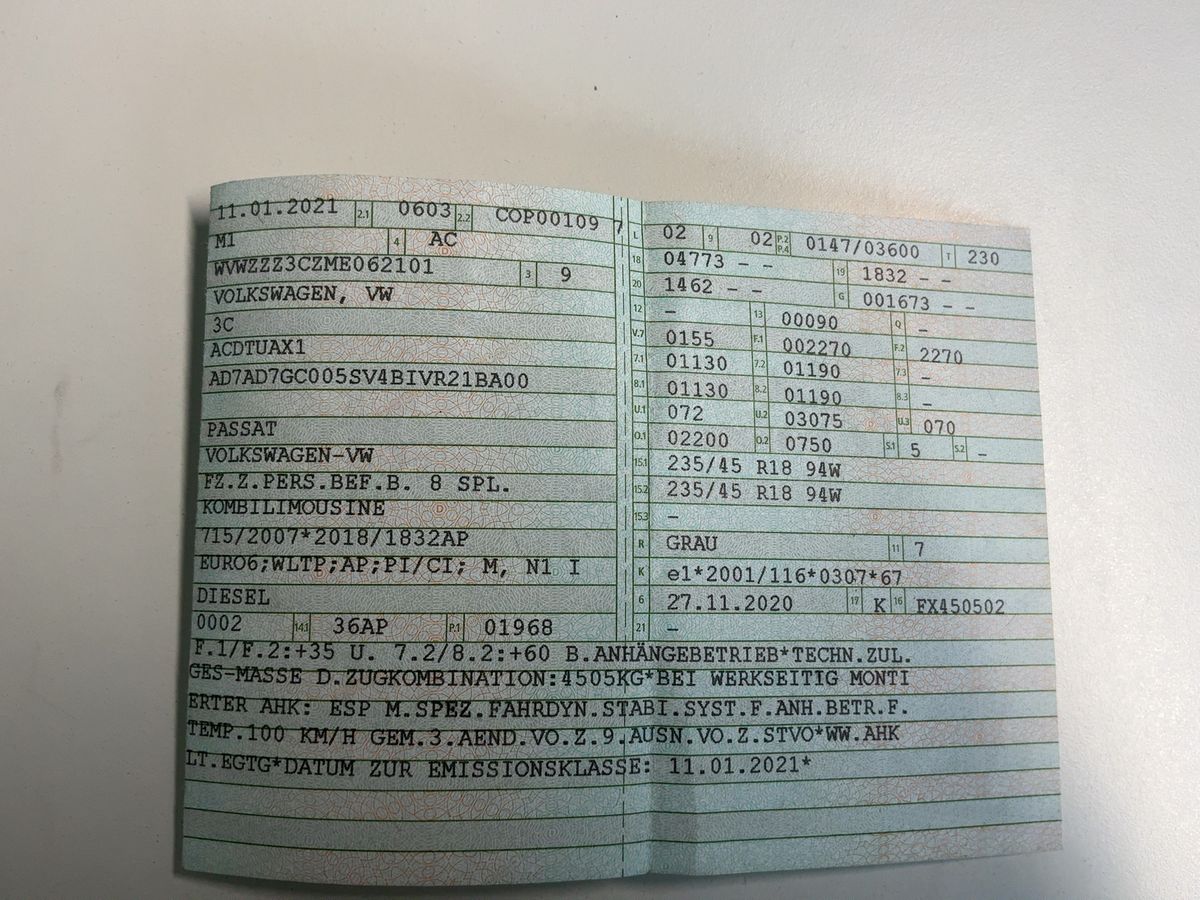 11.01.2021 2.1 0603 2.2 COP00109 7
M1 4 AC
WVWZZZ3CZME062101 3 9
VOLKSWAGEN, VW
3C
ACDTUAX1
AD7AD7GC005SV4BIVR21BA00
PASSAT
VOLKSWAGEN-VW
FZ.Z.PERS.BEF.B. 8 SPL.
KOMBILIMOUSINE
715/2007*2018/1832AP
EURO6;WLTP;AP;PI/CI; M, N1 I
DIESEL
0002 14.1 36AP P.1 01968
L 02 9 02 P.2 P.4 0147/03600 T 230
18 04773 - - 19 1832 - -
20 1462 - - G 001673 - -
12 - 13 00090 Q -
V.7 0155 F.1 002270 F.2 2270
7.1 01130 7.2 01190 7.3 -
8.1 01130 8.2 01190 8.3 -
U.1 072 U.2 03075 U.3 070
O.1 02200 O.2 0750 S.1 5 S.2 -
15.1 235/45 R18 94W
15.2 235/45 R18 94W
15.3 -
R GRAU 11 7
K e1*2001/116*0307*67
6 27.11.2020 17 K 16 FX450502
21 -
F.1/F.2:+35 U. 7.2/8.2:+60 B.ANHÄNGEBETRIEB*TECHN.ZUL.
GES-MASSE D.ZUGKOMBINATION:4505KG*BEI WERKSEITIG MONTI
ERTER AHK: ESP M.SPEZ.FAHRDYN.STABI.SYST.F.ANH.BETR.F.
TEMP.100 KM/H GEM.3.AEND.VO.Z.9.AUSN.VO.Z.STVO*WW.AHK
LT.EGTG*DATUM ZUR EMISSIONSKLASSE: 11.01.2021*